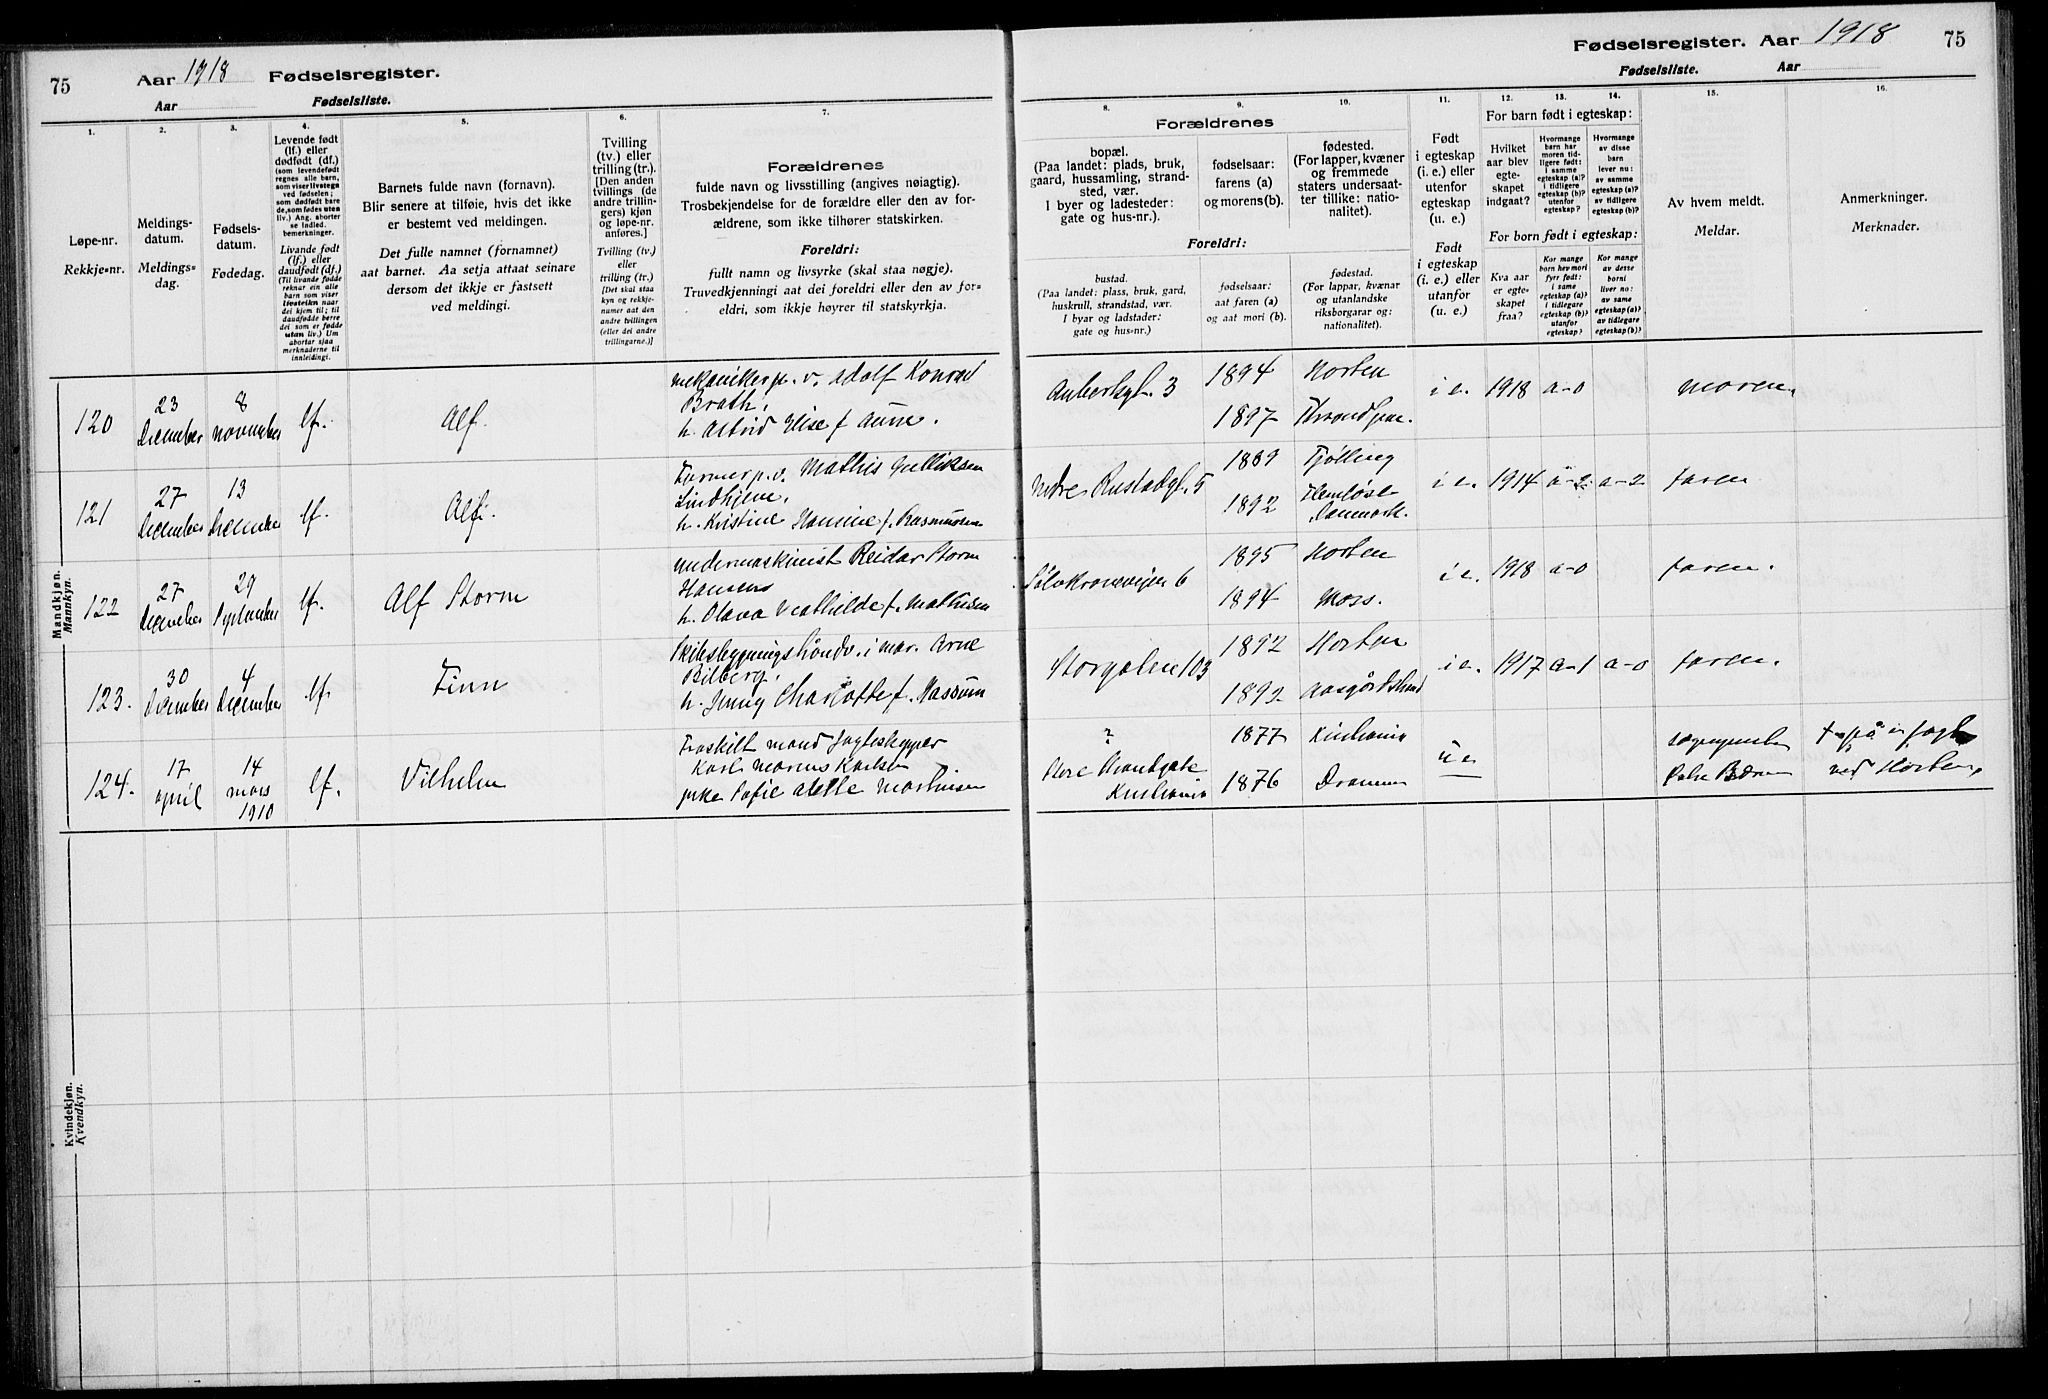 75
Aar 1918 Fødselsregister.
Aar
Fødselsliste.
1.
Løpe-nr.
Rekkje-nr.
2.
Meldings-
datum.
Meldings-
dag.
3.
Fødsels-
datum.
Fødedag.
4.
Levende født
(lf.) eller
dødfødt (df.)
(som levendefødt
regnes alle barn,
som viser livstegn
ved fødselen;
som dødfødt bare
de, som fødes uten
liv.) Ang. aborter
se Indled.
bemerkninger.
Livande født
(lf.) eller
daudfødt (df.)
(Til livande fødde
reknar ein alle
born som viser
livsteikn naar
dei kjem til; til
daudfødde berre
dei som er fødde
utan liv.) Um
abortar sjaa
merknaderne til
innleidingi.
5.
Barnets fulde navn (fornavn).
Blir senere at tilføie, hvis det ikke
er bestemt ved meldingen.
Det fulle namnet (fornamnet)
aat barnet. Aa setja attaat seinare
dersom det ikkje er fastsett
ved meldingi.
6.
Tvilling
(tv.) eller
trilling (tr.).
[Den anden
tvillings (de
andre trillin-
gers) kjøn
og løpe-nr.
anføres.]
Tvilling (tv.)
eller
trilling (tr.)
[Det skal staa
kyn og rekkje-
numer aat den
andre tvillingen
(eller dei andre
trillingarne.)]
7.
Forældrenes
fulde navn og livsstilling (angives nøiagtig).
Trosbekjendelse for de forældre eller den av for-
ældrene, som ikke tilhører statskirken.
Foreldri:
fullt namn og livsyrke (skal staa nøgje).
Truvedkjenningi aat dei foreldri eller den av for-
eldri, som ikkje høyrer til statskyrkja.
Mandkjøn.
Mannkyn.
120
23
December
8
november
lf.
Alf.
mekanikerp. v. Adolf Konrad
Brath,
h. Astrid Elise f Aune.
121
27
December
13
December
lf.
Alf.
Formerp. v. Mathis Gulliksen
Lindhjem,
h. Kristine Hansine f. Rasmussen
122
27
December
29
September
lf.
Alf Storm
undermaskinist Reidar Storm
Hansen
h. Olava Mathilde f. Mathisen
123.
30
December
4
December
lf.
Finn
Skibsbygningshåndv. i mar. Arne
Bilberg,
h. Jenny Charlotte f. Massum
124.
17
april
14
mars
1910
lf.
Vilhelm
Fraskilt mand Jagtskipper
Karl Marius Karlsen
pike Sofie Alette Martinsen
Kvindekjøn.
Kvendkyn.
Fødselsregister. Aar 1918 75
Fødselsliste. Aar
Forældrenes
8.
bopæl.
(Paa landet: plads, bruk,
gaard, hussamling, strand-
sted, vær.
I byer og ladesteder:
gate og hus-nr.).
9.
fødselsaar:
farens (a)
og morens(b).
10.
fødested.
(For lapper, kvæner
og fremmede
staters undersaat-
ter tillike: natio-
nalitet).
Foreldri:
bustad.
(Paa landet: plass, bruk, gard,
huskrull, strandstad, vær.
I byar og ladstader:
gate og hus-nr.)
fødselsaar:
aat faren (a)
og aat mori (b).
fødestad.
(For lappar, kvænar
og utanlandske
riksborgarar og:
nationalitet).
11.
Født
i egteskap
(i. e.) eller
utenfor
egteskap
(u. e.)
Født
i egteskap
(i. e.) eller
utanfor
(u. e.)
For barn født i egteskap:
12.
Hvilket
aar blev
egte-
skapet
indgaat?
13.
Hvormange
barn har
moren tid-
ligere født:
i samme
egteskap (a)?
i tidligere
egteskap (b)?
utenfor
egteskap?
14.
Hvormange
av disse
barn
lever nu:
av samme
egteskap (a)?
av tidligere
egteskap (b)?
For born født i egteskap:
Kva aar
er egte-
skapet
fraa?
Kor mange
born hev mori
fyrr født:
i same
egteskap (a)?
i tidlegare
egteskap (b)?
utanfor
egteskap?
Kor mange
av desse
borni
liver no:
av same
egteskap (a)?
av tidlegare
egteskap (b)?
15.
Av hvem meldt.
Meldar.
16.
Anmerkninger.
Merknader.
3
1894
1897
Horten
i e.
1918
a-0
moren.
Nedre Rustadgt. 5
1889
1892
Tjølling
Danmark.
i e.
1914
a-2
a-2
faren
Sølvkronesveien 6
1895
1894
Horten
Moss.
i e.
1918
a-0
faren.
Storgaten 103
1892
1892
Horten
Aasgårdstrand
i e.
1917
a-1
a-0
faren.
?
Store Strandgate
Kristiania
1877
1876
Kristiania
Drammen
u e
Østre Bærum
på en jagt
ved Horten,